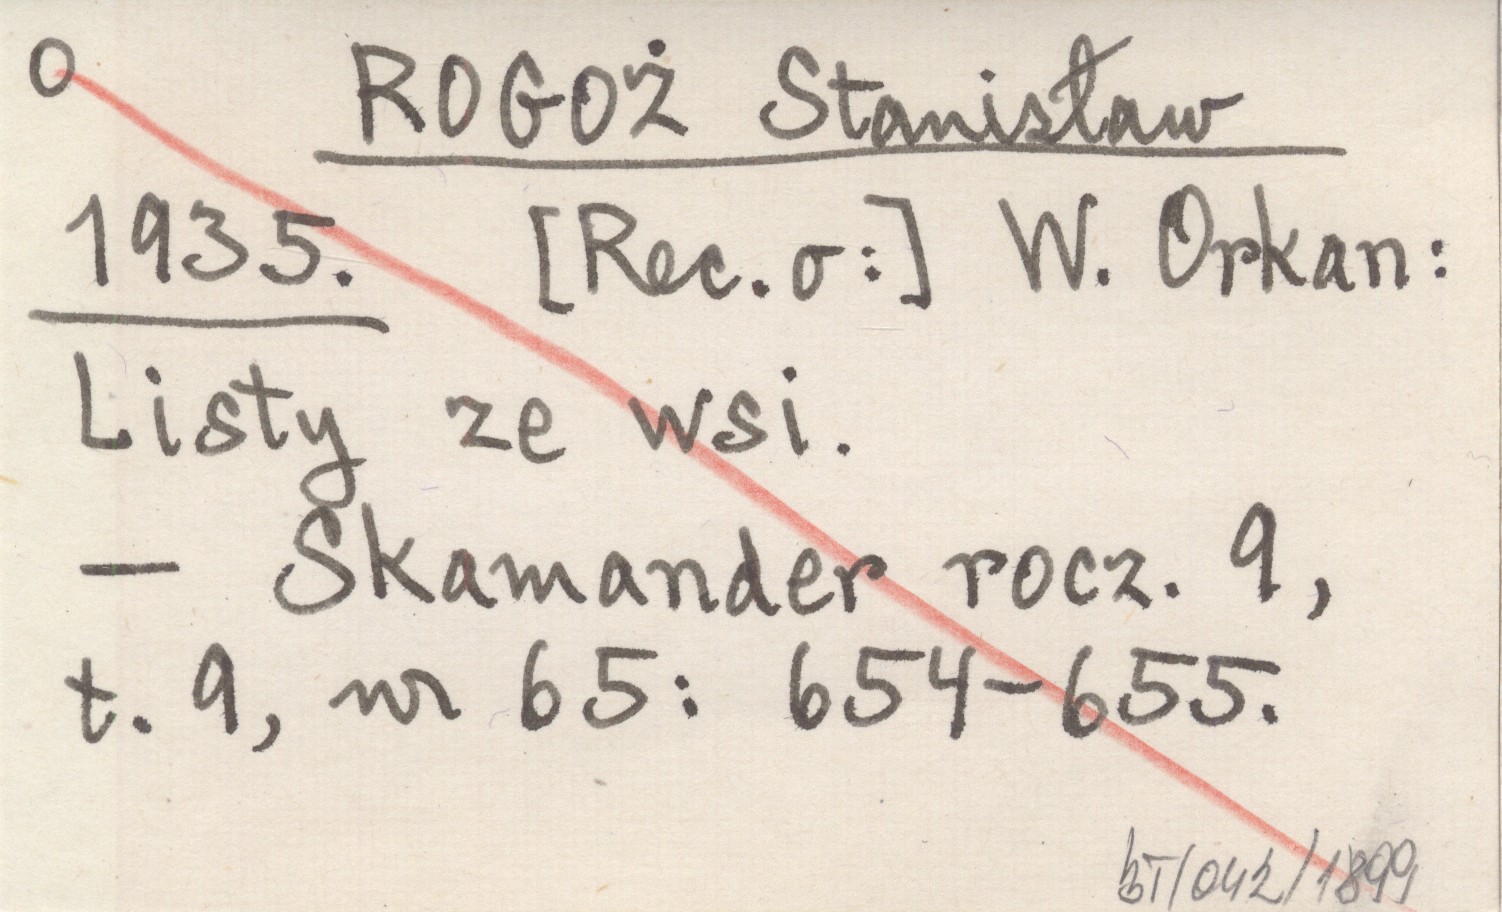 O ROGOŻ Stanisław
1935. [Rec. o:] W. Orkan:
Listy ze wsi.
— Skamander rocz. 9,
t. 9, nr 65: 654-655.
BT/042/1899